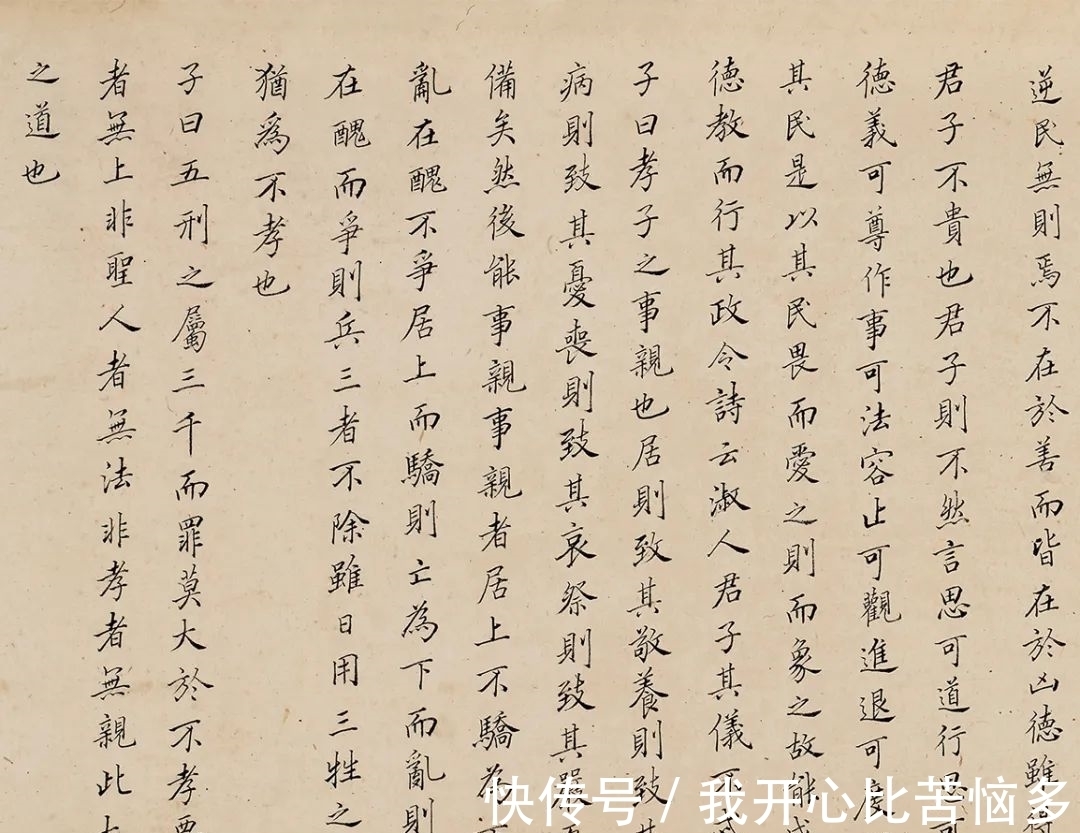 逆民無則焉不在於善而皆在於凶徳雖得
君子不貴也君子則不然言思可道行思可
徳義可尊作事可法容止可觀進退可度
其民是以其民畏而愛之則而象之故能成
徳教而行其政令詩云淑人君子其儀不
子曰孝子之事親也居則致其敬養則致其
病則致其憂喪則致其哀祭則致其嚴
備矣然後能事親事親者居上不驕為
亂在醜不爭居上而驕則亡為下而亂則
在醜而爭則兵三者不除雖日用三牲之
猶爲不孝也
子曰五刑之屬三千而罪莫大於不孝要
者無上非聖人者無法非孝者無親此
之道也
快传号/我开心比苦恼多